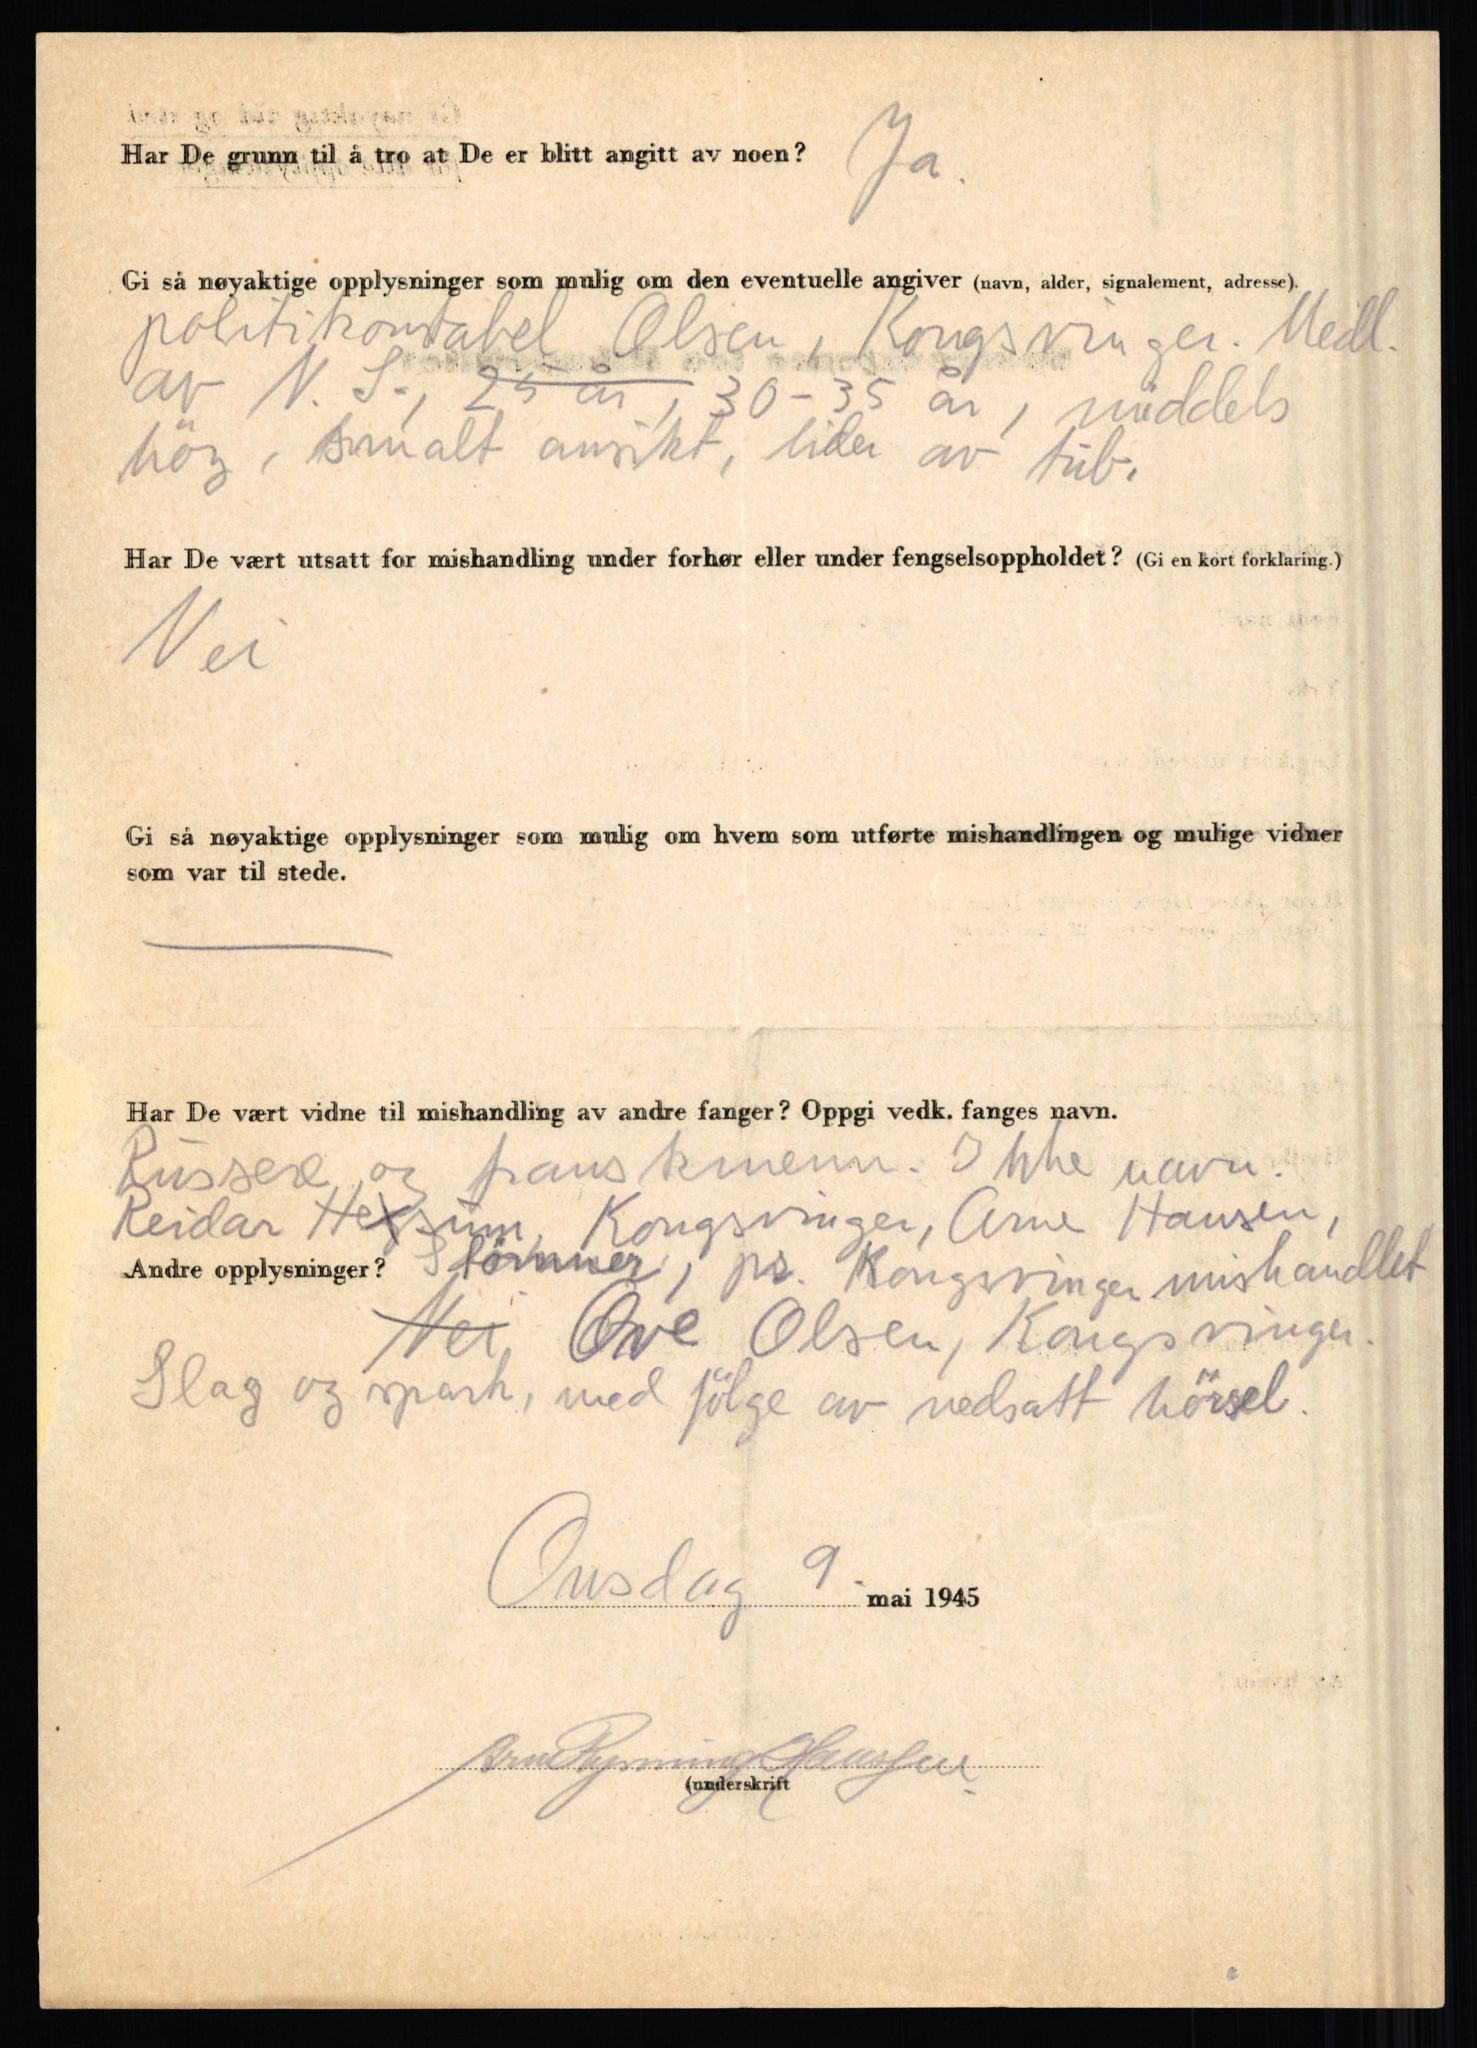 Har De grunn til å tro at De er blitt angitt av noen? Ja.
Gi så nøyaktige opplysninger som mulig om den eventuelle angiver (navn, alder, signalement, adresse).
politikonstabel Olsen, Kongsvinger. Medl.
av N. S., 25 år, 30-35 år, middels
hög, smalt ansikt, lider av tub.
Har De vært utsatt for mishandling under forhør eller under fengselsoppholdet? (Gi en kort forklaring.)
Nei
Gi så nøyaktige opplysninger som mulig om hvem som utførte mishandlingen og mulige vidner
som var til stede.
Har De vært vidne til mishandling av andre fanger? Oppgi vedk. fanges navn.
Russere og franskmenn. Ikke navn.
Reidar Kongsvinger, Arne Hansen,
Andre opplysninger? Störmner, pr. Kongsvinger mishandlet
Nei Ove Olsen, Kongsvinger.
Slag og spark, med fölge av nedsatt hörsel.
Onsdag 9. mai 1945
Arne Rynning Hanssen
(underskrift